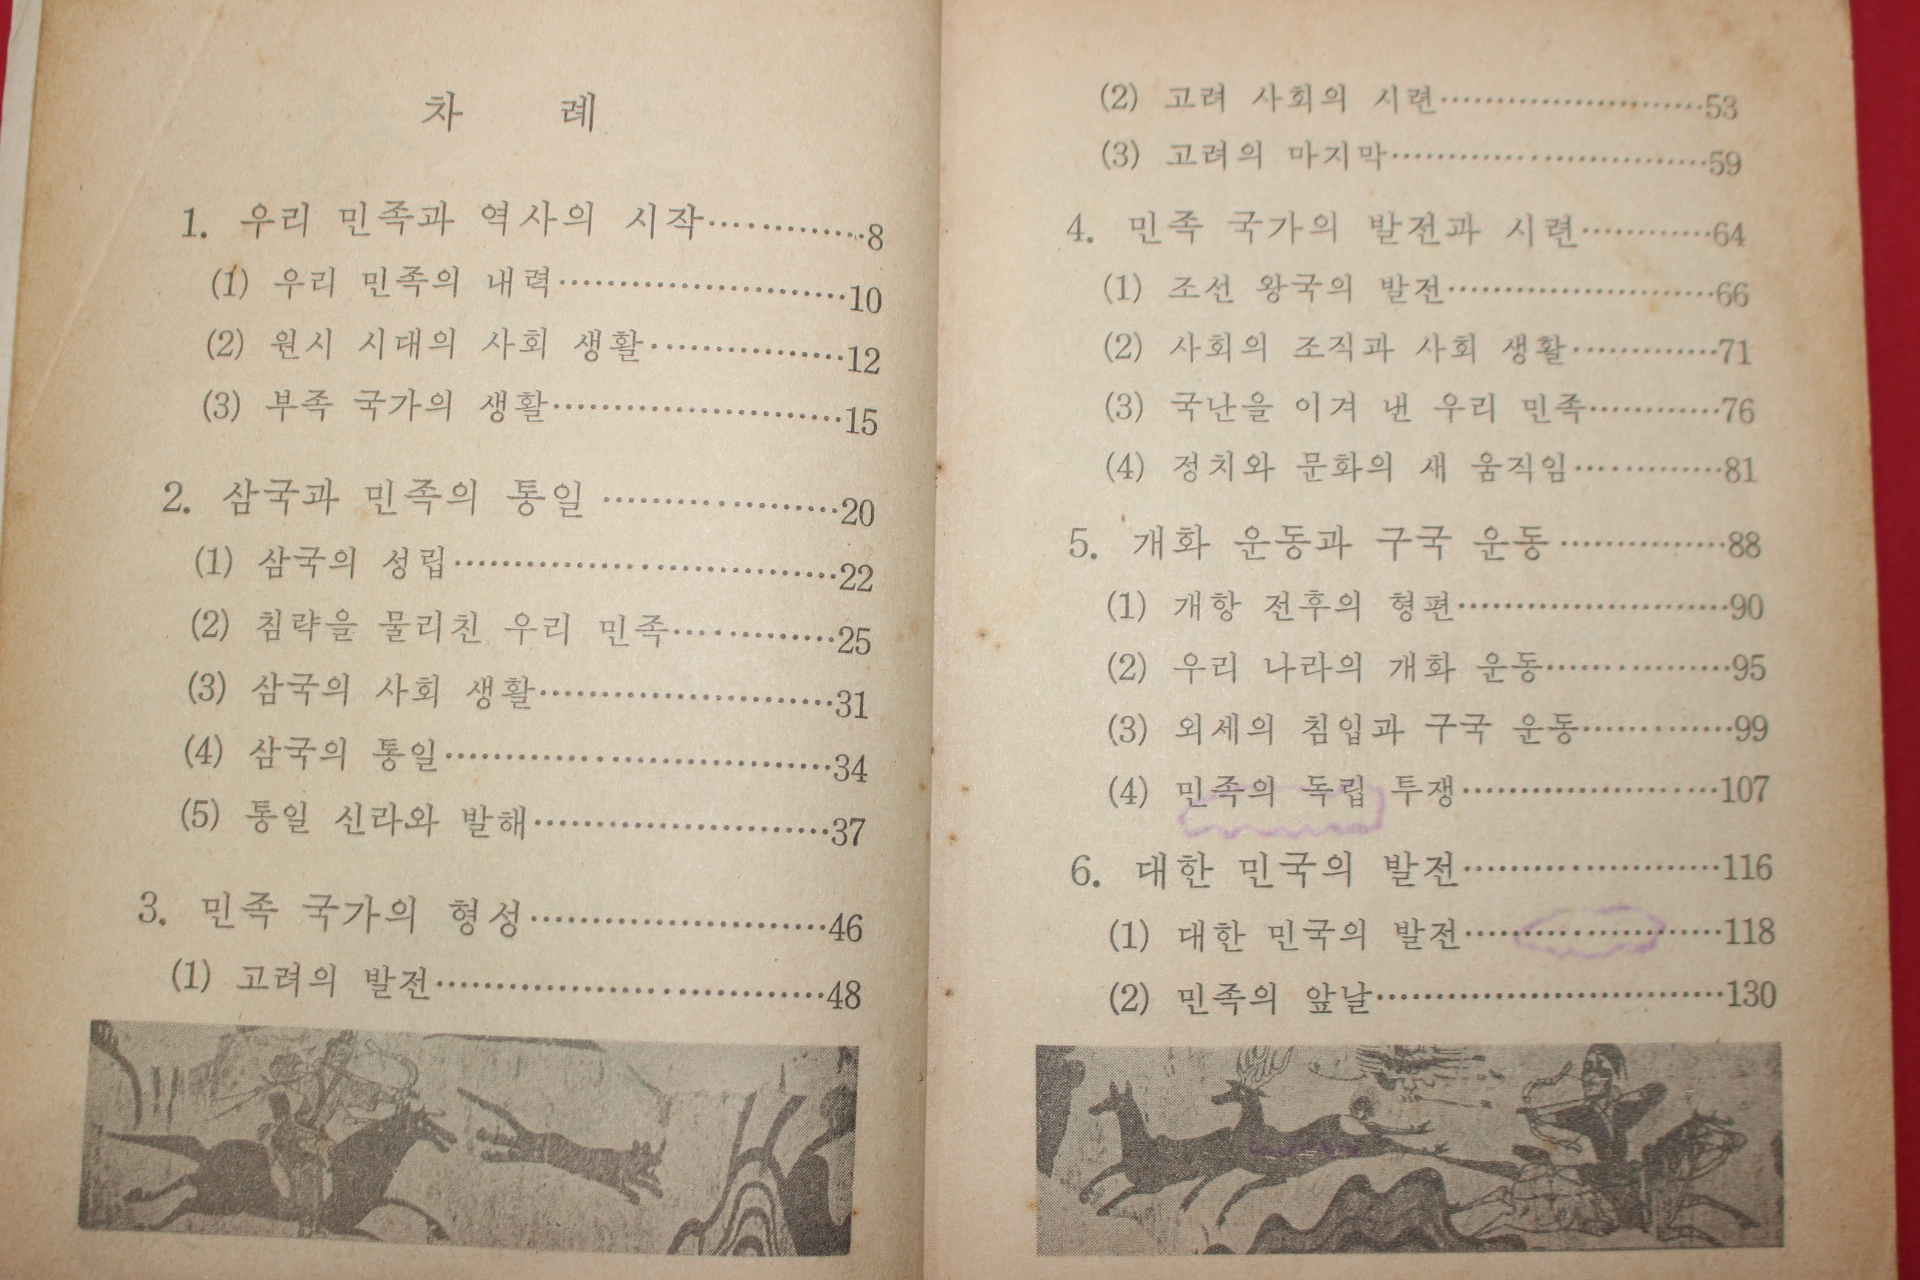 차 례
1. 우리 민족과 역사의 시작…………8
(1) 우리 민족의 내력…………10
(2) 원시 시대의 사회 생활…………12
(3) 부족 국가의 생활…………15
2. 삼국과 민족의 통일…………20
(1) 삼국의 성립…………22
(2) 침략을 물리친 우리 민족…………25
(3) 삼국의 사회 생활…………31
(4) 삼국의 통일…………34
(5) 통일 신라와 발해…………37
3. 민족 국가의 형성…………46
(1) 고려의 발전…………48
(2) 고려 사회의 시련…………53
(3) 고려의 마지막…………59
4. 민족 국가의 발전과 시련…………64
(1) 조선 왕국의 발전…………66
(2) 사회의 조직과 사회 생활…………71
(3) 국난을 이겨 낸 우리 민족…………76
(4) 정치와 문화의 새 움직임…………81
5. 개화 운동과 구국 운동…………88
(1) 개항 전후의 형편…………90
(2) 우리 나라의 개화 운동…………95
(3) 외세의 침입과 구국 운동…………99
(4) 민족의 독립 투쟁…………107
6. 대한 민국의 발전…………116
(1) 대한 민국의 발전…………118
(2) 민족의 앞날…………130